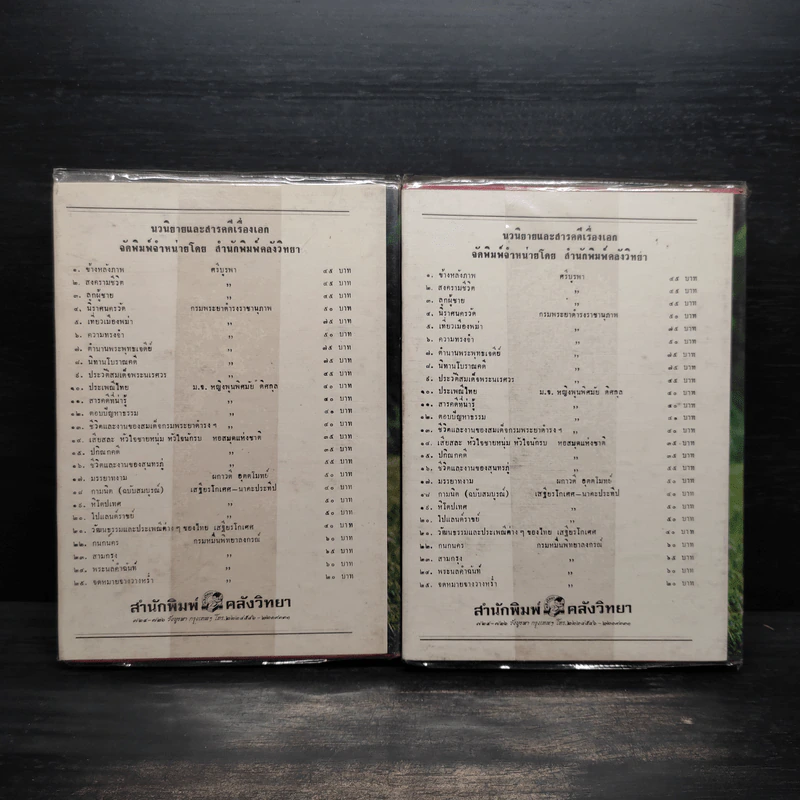 นวนิยายและสารคดีเรื่องเอก
จัดพิมพ์จำหน่ายโดย สำนักพิมพ์คลังวิทยา
๑. ข้างหลังภาพ ศรีบูรพา ๔๕ บาท
๒. สงครามชีวิต ,, ๔๕ บาท
๓. ลูกผู้ชาย ,, ๔๕ บาท
๔. นิราศนครวัด กรมพระยาดำรงราชานุภาพ ๕๐ บาท
๕. เที่ยวเมืองพม่า ,, ๗๕ บาท
๖. ความทรงจำ ,, ๕๐ บาท
๗. ตำนานพระพุทธเจดีย์ ,, ๗๕ บาท
๘. นิทานโบราณคดี ,, ๗๕ บาท
๙. ประวัติสมเด็จพระนเรศวร ,, ๕๕ บาท
๑๐. ประเพณีไทย ม.จ. หญิงพูนพิศมัย ดิศกุล ๔๐ บาท
๑๑. สารคดีที่น่ารู้ ,, ๔๐ บาท
๑๒. ตอบปัญหาธรรม ,, ๔๐ บาท
๑๓. ชีวิตและงานของสมเด็จกรมพระยาดำรง ฯ ,, ๔๐ บาท
๑๔. เสียสละ หัวใจชายหนุ่ม หัวใจนักรบ หอสมุดแห่งชาติ ๓๕ บาท
๑๕. ปกิณกคดี ,, ๓๕ บาท
๑๖. ชีวิตและงานของสุนทรภู่ ,, ๕๕ บาท
๑๗. มรรยาทงาม ผกาวดี อุตตโมทย์ ๕๐ บาท
๑๘ กามนิต (ฉบับสมบูรณ์) เสฐียรโกเศศ-นาคะประทีป ๔๐ บาท
๑๙. หิโตปเทศ ,, ๕๐ บาท
๒๐. ไปแลนด์ราชย์ ,, ๕๐ บาท
๒๑. วัฒนธรรมและประเพณีต่าง ๆ ของไทย เสฐียรโกเศศ ๔๐ บาท
๒๒. กนกนคร กรมหมื่นพิทยาลงกรณ์ ๖๐ บาท
๒๓. สามกรุง ,, ๖๕ บาท
๒๔. พระนลคำฉันท์ ,, ๖๐ บาท
๒๕. จดหมายจางวางหร่ำ ,, ๒๐ บาท
สำนักพิมพ์ คลังวิทยา
นวนิยายและสารคดีเรื่องเอก
จัดพิมพ์จำหน่ายโดย สำนักพิมพ์คลังวิทยา
๑. ข้างหลังภาพ ศรีบูรพา ๔๕ บาท
๒. สงครามชีวิต ,, ๔๕ บาท
๓. ลูกผู้ชาย ,, ๔๕ บาท
๔. นิราศนครวัด กรมพระยาดำรงราชานุภาพ ๕๐ บาท
๕. เที่ยวเมืองพม่า ,, ๗๕ บาท
๖. ความทรงจำ ,, ๕๐ บาท
๗. ตำนานพระพุทธเจดีย์ ,, ๗๕ บาท
๘. นิทานโบราณคดี ,, ๗๕ บาท
๙. ประวัติสมเด็จพระนเรศวร ,, ๕๕ บาท
๑๐. ประเพณีไทย ม.จ. หญิงพูนพิศมัย ดิศกุล ๔๐ บาท
๑๑. สารคดีที่น่ารู้ ,, ๔๐ บาท
๑๒. ตอบปัญหาธรรม ,, ๔๐ บาท
๑๓. ชีวิตและงานของสมเด็จกรมพระยาดำรง ฯ ,, ๔๐ บาท
๑๔. เสียสละ หัวใจชายหนุ่ม หัวใจนักรบ หอสมุดแห่งชาติ ๓๕ บาท
๑๕. ปกิณกคดี ,, ๓๕ บาท
๑๖. ชีวิตและงานของสุนทรภู่ ,, ๕๕ บาท
๑๗. มรรยาทงาม ผกาวดี อุตตโมทย์ ๕๐ บาท
๑๘ กามนิต (ฉบับสมบูรณ์) เสฐียรโกเศศ-นาคะประทีป ๔๐ บาท
๑๙. หิโตปเทศ ,, ๕๐ บาท
๒๐. ไปแลนด์ราชย์ ,, ๕๐ บาท
๒๑. วัฒนธรรมและประเพณีต่าง ๆ ของไทย เสฐียรโกเศศ ๔๐ บาท
๒๒. กนกนคร กรมหมื่นพิทยาลงกรณ์ ๖๐ บาท
๒๓. สามกรุง ,, ๖๕ บาท
๒๔. พระนลคำฉันท์ ,, ๖๐ บาท
๒๕. จดหมายจางวางหร่ำ ,, ๒๐ บาท
สำนักพิมพ์ คลังวิทยา